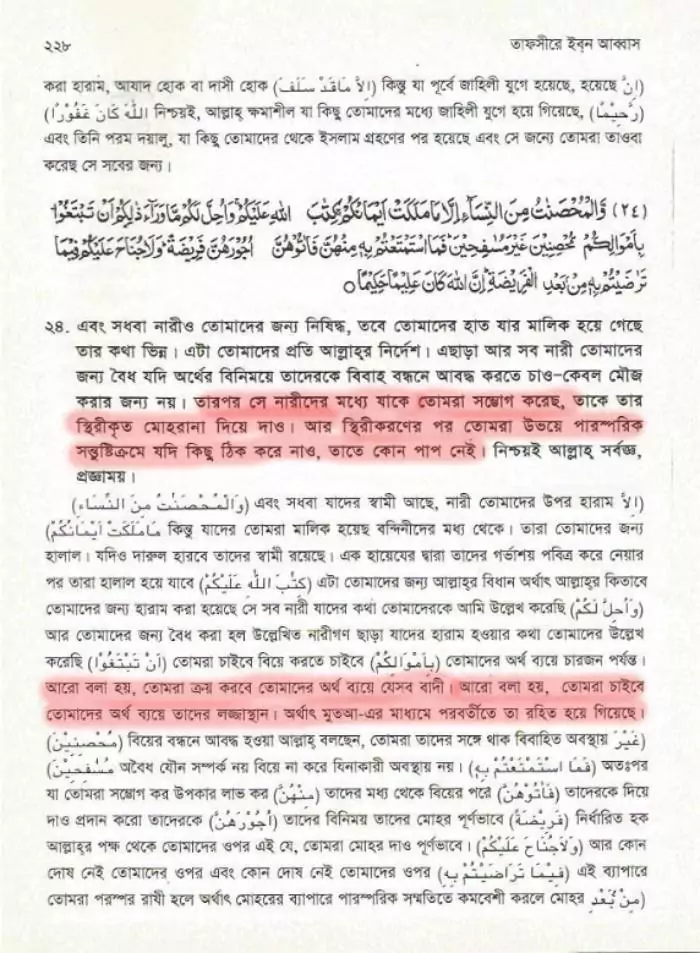 ২২৮ তাফসীরে ইবন আব্বাস
করা হারাম, আযাদ হোক বা দাসী হোক (اِلاَّ مَاقَدْ سَلَفَ) কিন্তু যা পূর্বে জাহিলী যুগে হয়েছে, হয়েছে (اِنَّ
اللّٰهَ كَانَ غَفُوْرًا) নিশ্চয়ই, আল্লাহ্ ক্ষমাশীল যা কিছু তোমাদের মধ্যে জাহিলী যুগে হয়ে গিয়েছে, (رَّحِيْمًا)
এবং তিনি পরম দয়ালু, যা কিছু তোমাদের থেকে ইসলাম গ্রহণের পর হয়েছে এবং সে জন্যে তোমরা তাওবা
করেছ সে সবের জন্য।
(٢٤) وَّالْمُحْصَنٰتُ مِنَ النِّسَآءِ اِلَّا مَا مَلَكَتْ اَيْمَانُكُمْ كِتٰبَ اللهِ عَلَيْكُمْ وَاُحِلَّ لَكُمْ مَّا وَرَآءَ ذٰلِكُمْ اَنْ تَبْتَغُوْا
بِاَمْوَالِكُمْ مُّحْصِنِيْنَ غَيْرَ مُسٰفِحِيْنَ فَمَا اسْتَمْتَعْتُمْ بِهٖ مِنْهُنَّ فَاٰتُوْهُنَّ اُجُوْرَهُنَّ فَرِيْضَةً وَلَا جُنَاحَ عَلَيْكُمْ فِيْمَا
تَرٰضَيْتُمْ بِهٖ مِنْ بَعْدِ الْفَرِيْضَةِ اِنَّ اللهَ كَانَ عَلِيْمًا حَكِيْمًا ○
২৪. এবং সধবা নারীও তোমাদের জন্য নিষিদ্ধ, তবে তোমাদের হাত যার মালিক হয়ে গেছে
তার কথা ভিন্ন। এটা তোমাদের প্রতি আল্লাহ্‌র নির্দেশ। এছাড়া আর সব নারী তোমাদের
জন্য বৈধ যদি অর্থের বিনিময়ে তাদেরকে বিবাহ বন্ধনে আবদ্ধ করতে চাও-কেবল মৌজ
করার জন্য নয়। তারপর সে নারীদের মধ্যে যাকে তোমরা সম্ভোগ করেছ, তাকে তার
স্থিরীকৃত মোহরানা দিয়ে দাও। আর স্থিরীকরণের পর তোমরা উভয়ে পারস্পরিক
সন্তুষ্টিক্রমে যদি কিছু ঠিক করে নাও, তাতে কোন পাপ নেই। নিশ্চয়ই আল্লাহ্ সর্বজ্ঞ,
প্রজ্ঞাময়।
(وَالْمُحْصَنٰتُ مِنَ النِّسَاءِ) এবং সধবা যাদের স্বামী আছে, নারী তোমাদের উপর হারাম (اِلاَّ
مَامَلَكَتْ اَيْمَانُكُمْ) কিন্তু যাদের তোমরা মালিক হয়েছ বন্দিনীদের মধ্য থেকে। তারা তোমাদের জন্য
হালাল। যদিও দারুল হারবে তাদের স্বামী রয়েছে। এক হায়েযের দ্বারা তাদের গর্ভাশয় পবিত্র করে নেয়ার
পর তারা হালাল হয়ে যাবে (كِتٰبَ اللّٰهِ عَلَيْكُمْ) এটা তোমাদের জন্য আল্লাহর বিধান অর্থাৎ আল্লাহর কিতাবে
তোমাদের জন্য হারাম করা হয়েছে সে সব নারী যাদের কথা তোমাদেরকে আমি উল্লেখ করেছি (وَاُحِلَّ لَكُمْ)
আর তোমাদের জন্য বৈধ করা হল উল্লেখিত নারীগণ ছাড়া যাদের হারাম হওয়ার কথা তোমাদের উল্লেখ
করেছি (اَنْ تَبْتَغُوْا) তোমরা চাইবে বিয়ে করতে চাইবে (بِاَمْوَالِكُمْ) তোমাদের অর্থ ব্যয়ে চারজন পর্যন্ত।
আরো বলা হয়, তোমরা ক্রয় করবে তোমাদের অর্থ ব্যয়ে যেসব বাদী। আরো বলা হয়, তোমরা চাইবে
তোমাদের অর্থ ব্যয়ে তাদের লজ্জাস্থান। অর্থাৎ মুতআ-এর মাধ্যমে পরবর্তীতে তা রহিত হয়ে গিয়েছে।
(مُحْصِنِيْنَ) বিয়ের বন্ধনে আবদ্ধ হওয়া আল্লাহ্ বলছেন, তোমরা তাদের সঙ্গে থাক বিবাহিত অবস্থায় (غَيْرَ
مُسٰفِحِيْنَ) অবৈধ যৌন সম্পর্ক নয় বিয়ে না করে যিনাকারী অবস্থায় নয়। (فَمَا اسْتَمْتَعْتُمْ بِهٖ) অতঃপর
যা তোমরা সম্ভোগ কর উপকার লাভ কর (مِنْهُنَّ) তাদের মধ্য থেকে বিয়ের পরে (فَاٰتُوْهُنَّ) তাদেরকে দিয়ে
দাও প্রদান করো তাদেরকে (اُجُوْرَهُنَّ) তাদের বিনিময় তাদের মোহর পূর্ণভাবে (فَرِيْضَةً) নির্ধারিত হক
আল্লাহর পক্ষ থেকে তোমাদের ওপর এই যে, তোমরা মোহর দাও পূর্ণভাবে। (وَلاَجُنَاحَ عَلَيْكُمْ) আর কোন
দোষ নেই তোমাদের ওপর এবং কোন দোষ নেই তোমাদের ওপর (فِيْمَا تَرَاضَيْتُمْ بِهٖ) এই ব্যাপারে
তোমরা পরস্পর রাযী হলে অর্থাৎ মোহরের ব্যাপারে পারস্পরিক সম্মতিতে কমবেশী করলে মোহর (مِنْ بَعْدِ